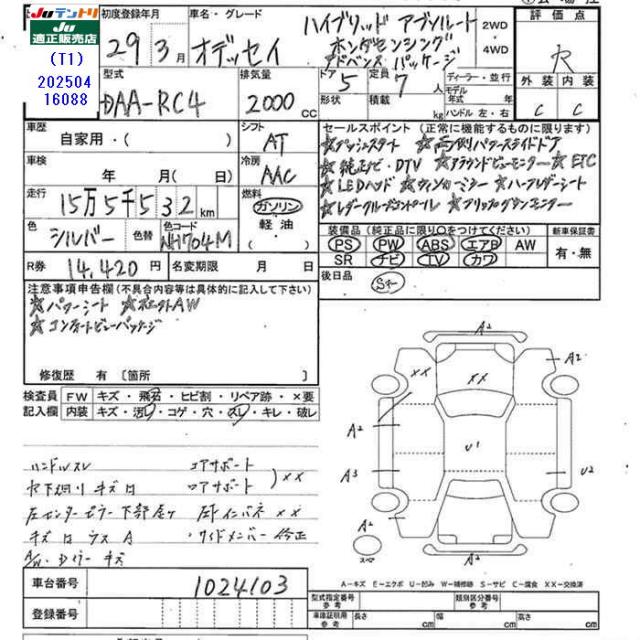 JU テントリ
JU
適正販売店
(T1)
202504
16088
初度登録年月
29 3月
車名・グレード
オデッセイ
ハイブリッド アブソルート
ホンダセンシング
アドバンス パッケージ
2WD
・
4WD
評価点
R
外装 内装
C C
型式
DAA-RC4
排気量
2000 cc
ドア 5
定員 7 人
形状
積載 kg
ディーラー・並行
モデル
年式 年
ハンドル 左・右
車歴
自家用・( )
シフト AT
セールスポイント (正常に機能するものに限ります)
☆プッシュスタート ☆両側パワースライドドア
☆純正ナビ・DTV ☆アラウンドビューモニター ☆ETC
☆LEDヘッド ☆ウィンカーミラー ☆ハーフレザーシート
☆レーダークルーズコントロール
車検 年 月( 日)
冷房 AAC
走行 15万5千532km
燃料
ガソリン
軽油
( )
色 シルバー
色替
色コード NH704M
装備品 (純正品に限り○をつけてください)
PS PW ABS エアB AW
SR ナビ TV カワ
新車保証書
有・無
R券 14,420円
名変期限 月 日
後日品
注意事項申告欄 (不具合内容等は具体的に記入して下さい)
☆パワーシート
☆コンフォートビューパッケージ
修復歴 有 〔箇所 〕
検査員
記入欄
FW キズ・飛石・ヒビ割・リペア跡・×要
内装 キズ・汚レ・コゲ・穴・スレ・キレ・破レ
ハンドルスレ コアサポート
××
左センターピラー下部
キズ
サイドメンバー 修正
キズ
A2
××
××
A2
A2
U1
A3
U2
A2
A2
スペア
A-キズ E-エクボ U-凹み W-補修跡 S-サビ C-腐食 XX-交換済
車台番号 1024103
登録番号
型式指定番号
参考
類別区分番号
参考
車体証明用
参考
長さ cm
幅 cm
高さ cm